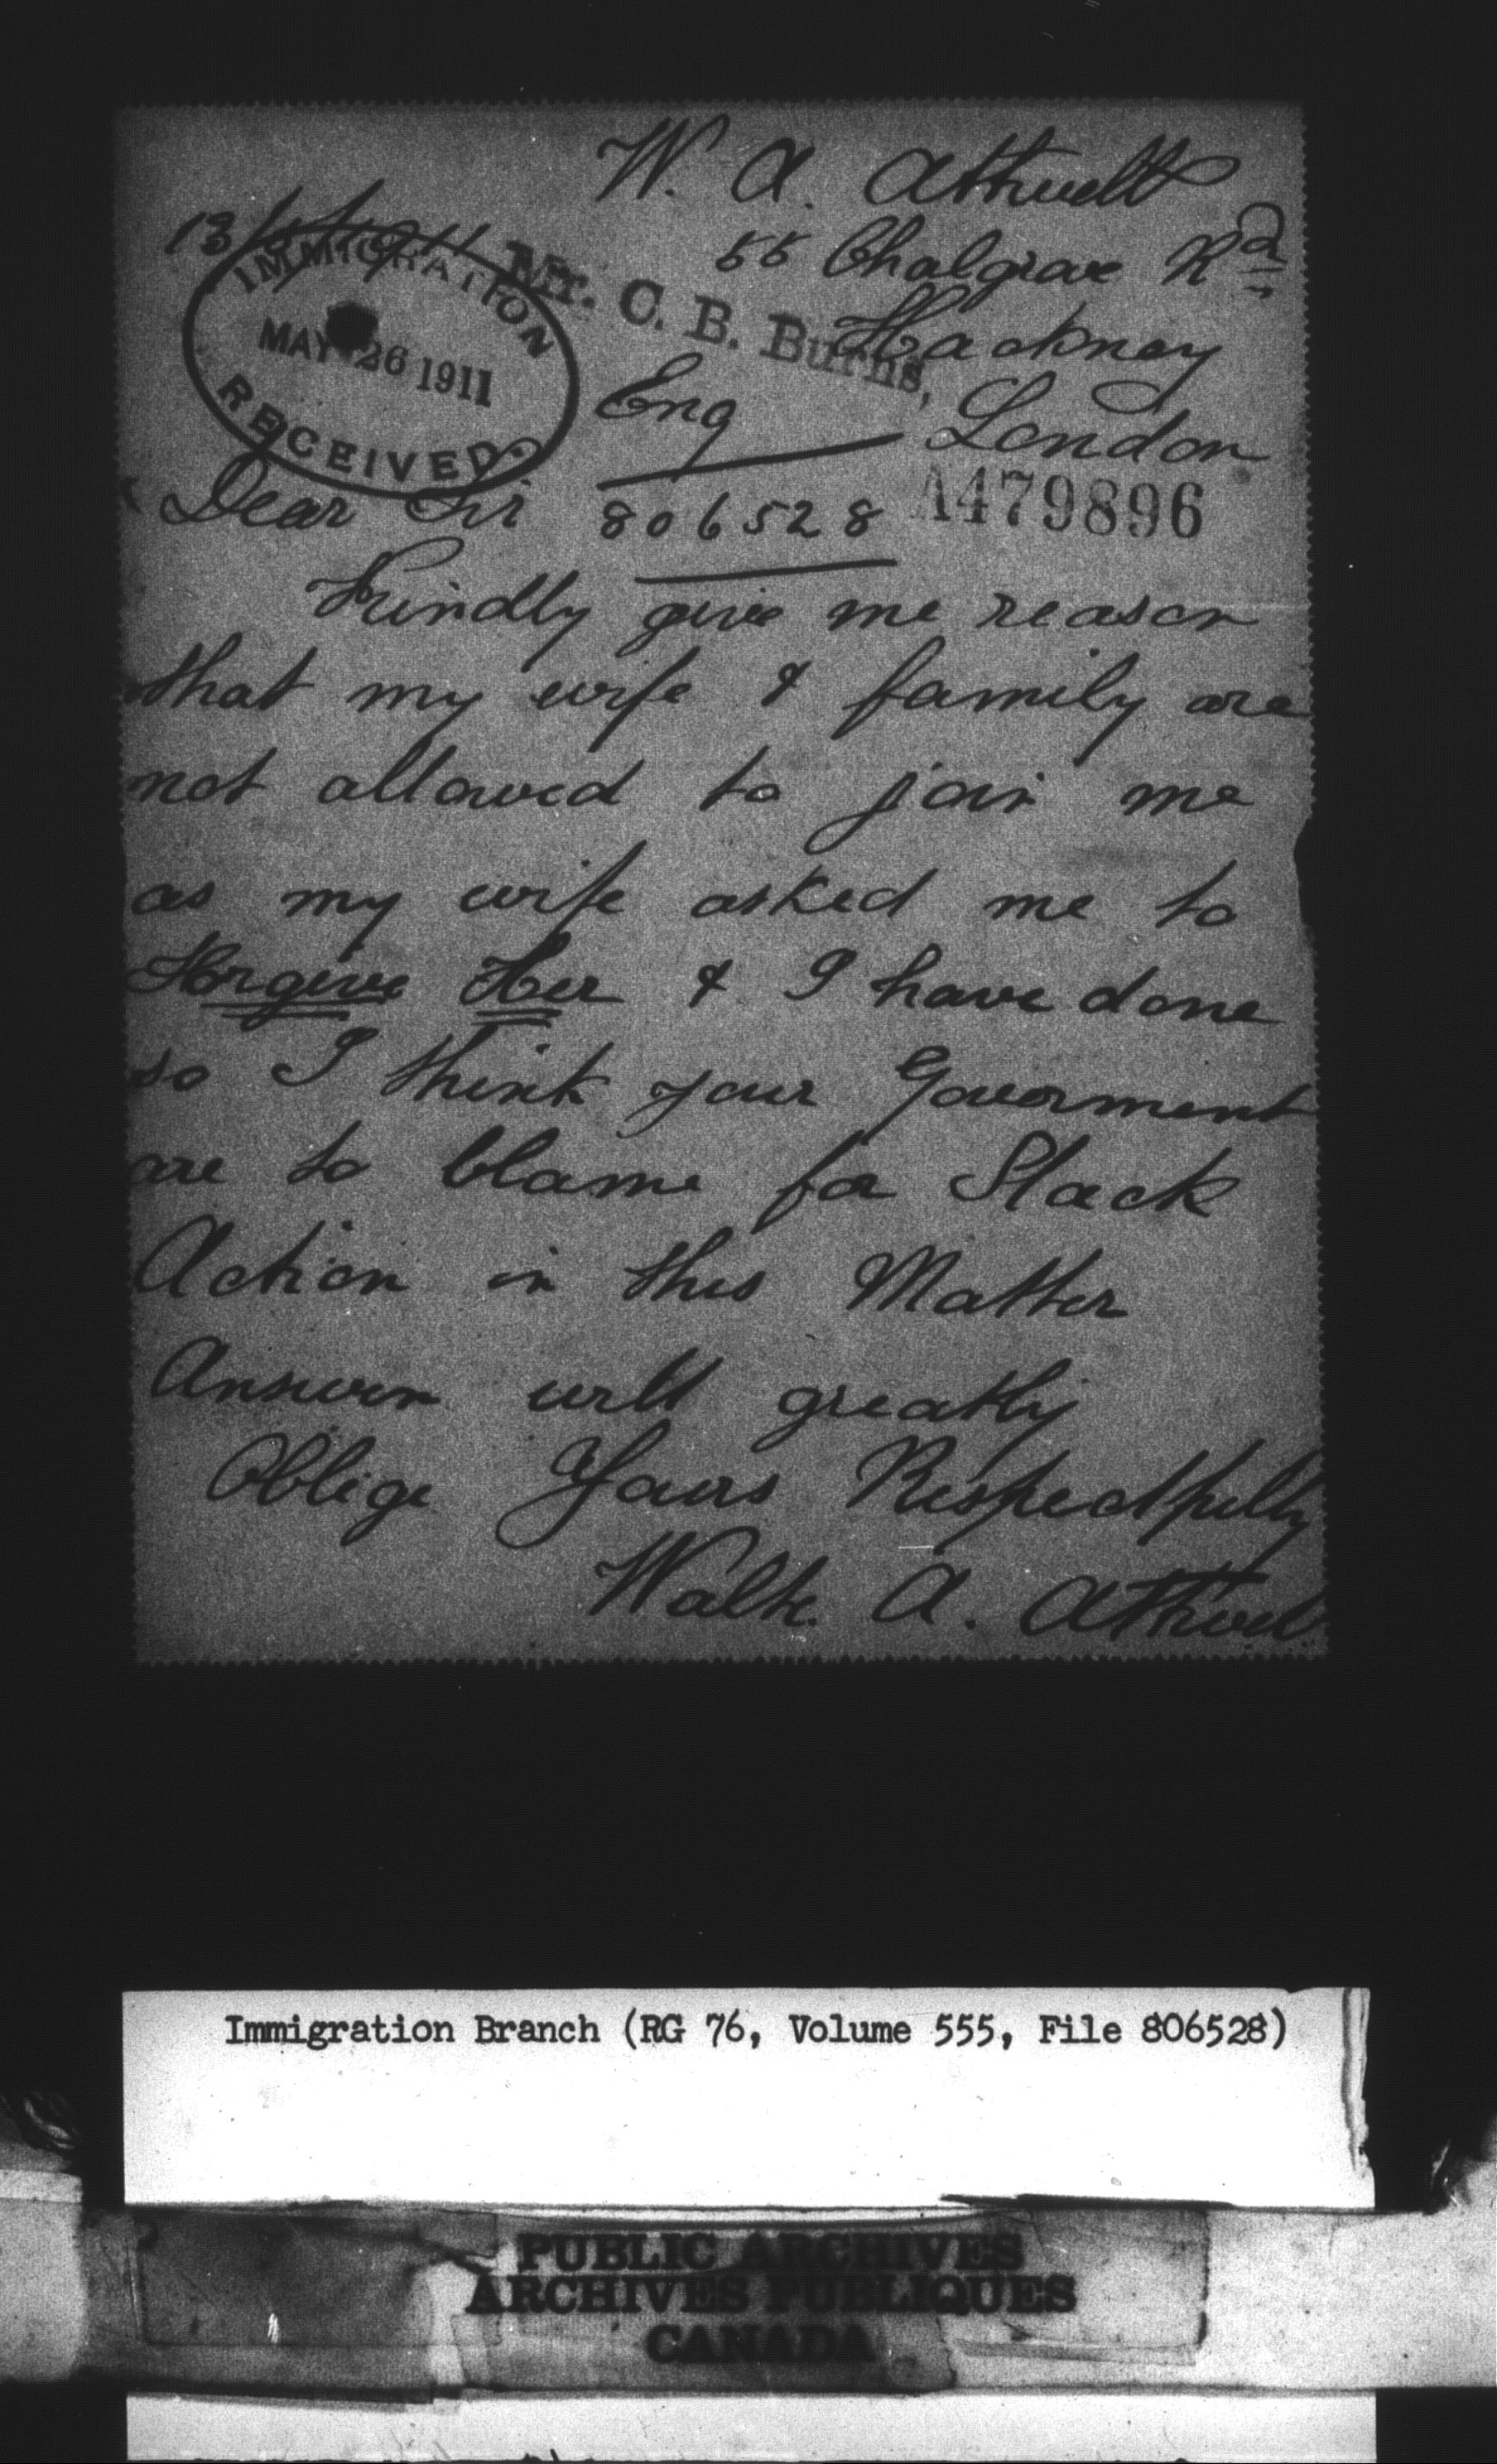 W. A. Attwell
13/5/1911
55 Chalgrove Rd
IMMIGRATION
MAY 26 1911
RECEIVED
Mr. C. B. Burns,
Hackney
Eng London
Dear Sir 806528 A479896
Kindly give me reason
that my wife & family are
not allowed to join me
as my wife asked me to
Forgive Her & I have done
so I think your Goverment
are to blame for Slack
Action in this Matter
Answer will greatly
Oblige Yours Respectfully
Walte. A. Attwell
Immigration Branch (RG 76, Volume 555, File 806528)
PUBLIC ARCHIVES
ARCHIVES PUBLIQUES
CANADA